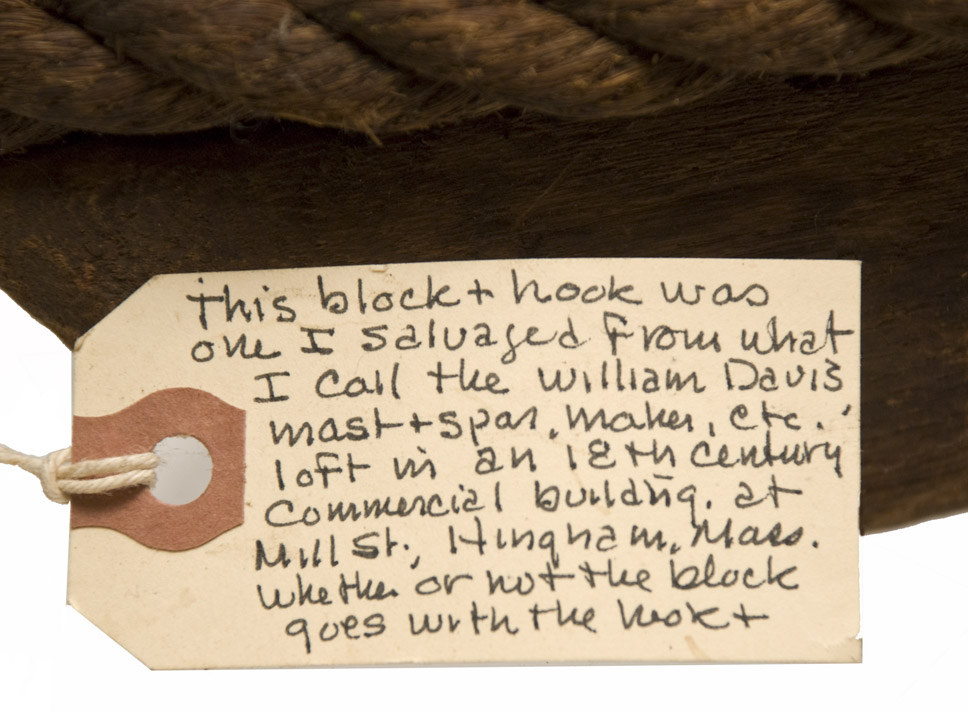 This block + hook was
one I salvaged from what
I call the William Davis
mast + spar, maker, etc.
loft in an 18th century
Commercial building, at
Mill St., Hingham, Mass.
Whether or not the block
goes with the hook +